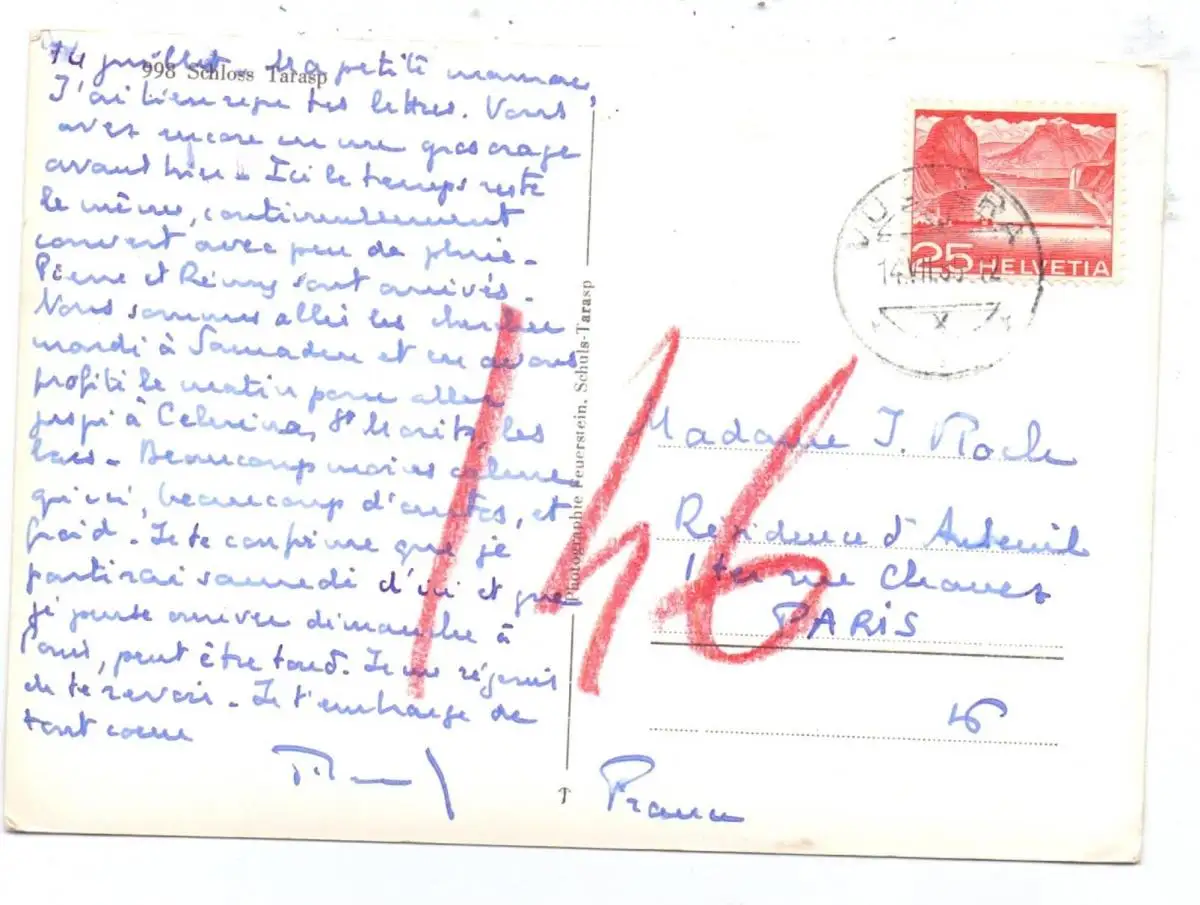 998 Schloss Tarasp
14 juillet. Ma petite maman,
J'ai bien reçu tes lettres. Vous
avez encore eu un gros orage
avant hier. Ici le temps reste
le même, continuellement
couvert avec peu de pluie.
Pierre et Rémy sont arrivés.
Nous sommes allés les chercher
mardi à Samaden et en avons
profité le matin pour aller
jusqu'à Celerina, St Moritz, les
lacs. Beaucoup moins calme
qu'ici, beaucoup d'autos, et
froid. Je te confirme que je
partirai samedi d'ici et que
je pense arriver dimanche à
Paris, peut être tard. Je me réjouis
de te revoir. Je t'embrasse de
tout coeur
Photographie Feuerstein, Schuls-Tarasp
25 HELVETIA
VULPERA
14.VII.55.12
X
146
Madame J. Roche
Résidence d'Auteuil
1 ter rue Chanez
PARIS
16
France